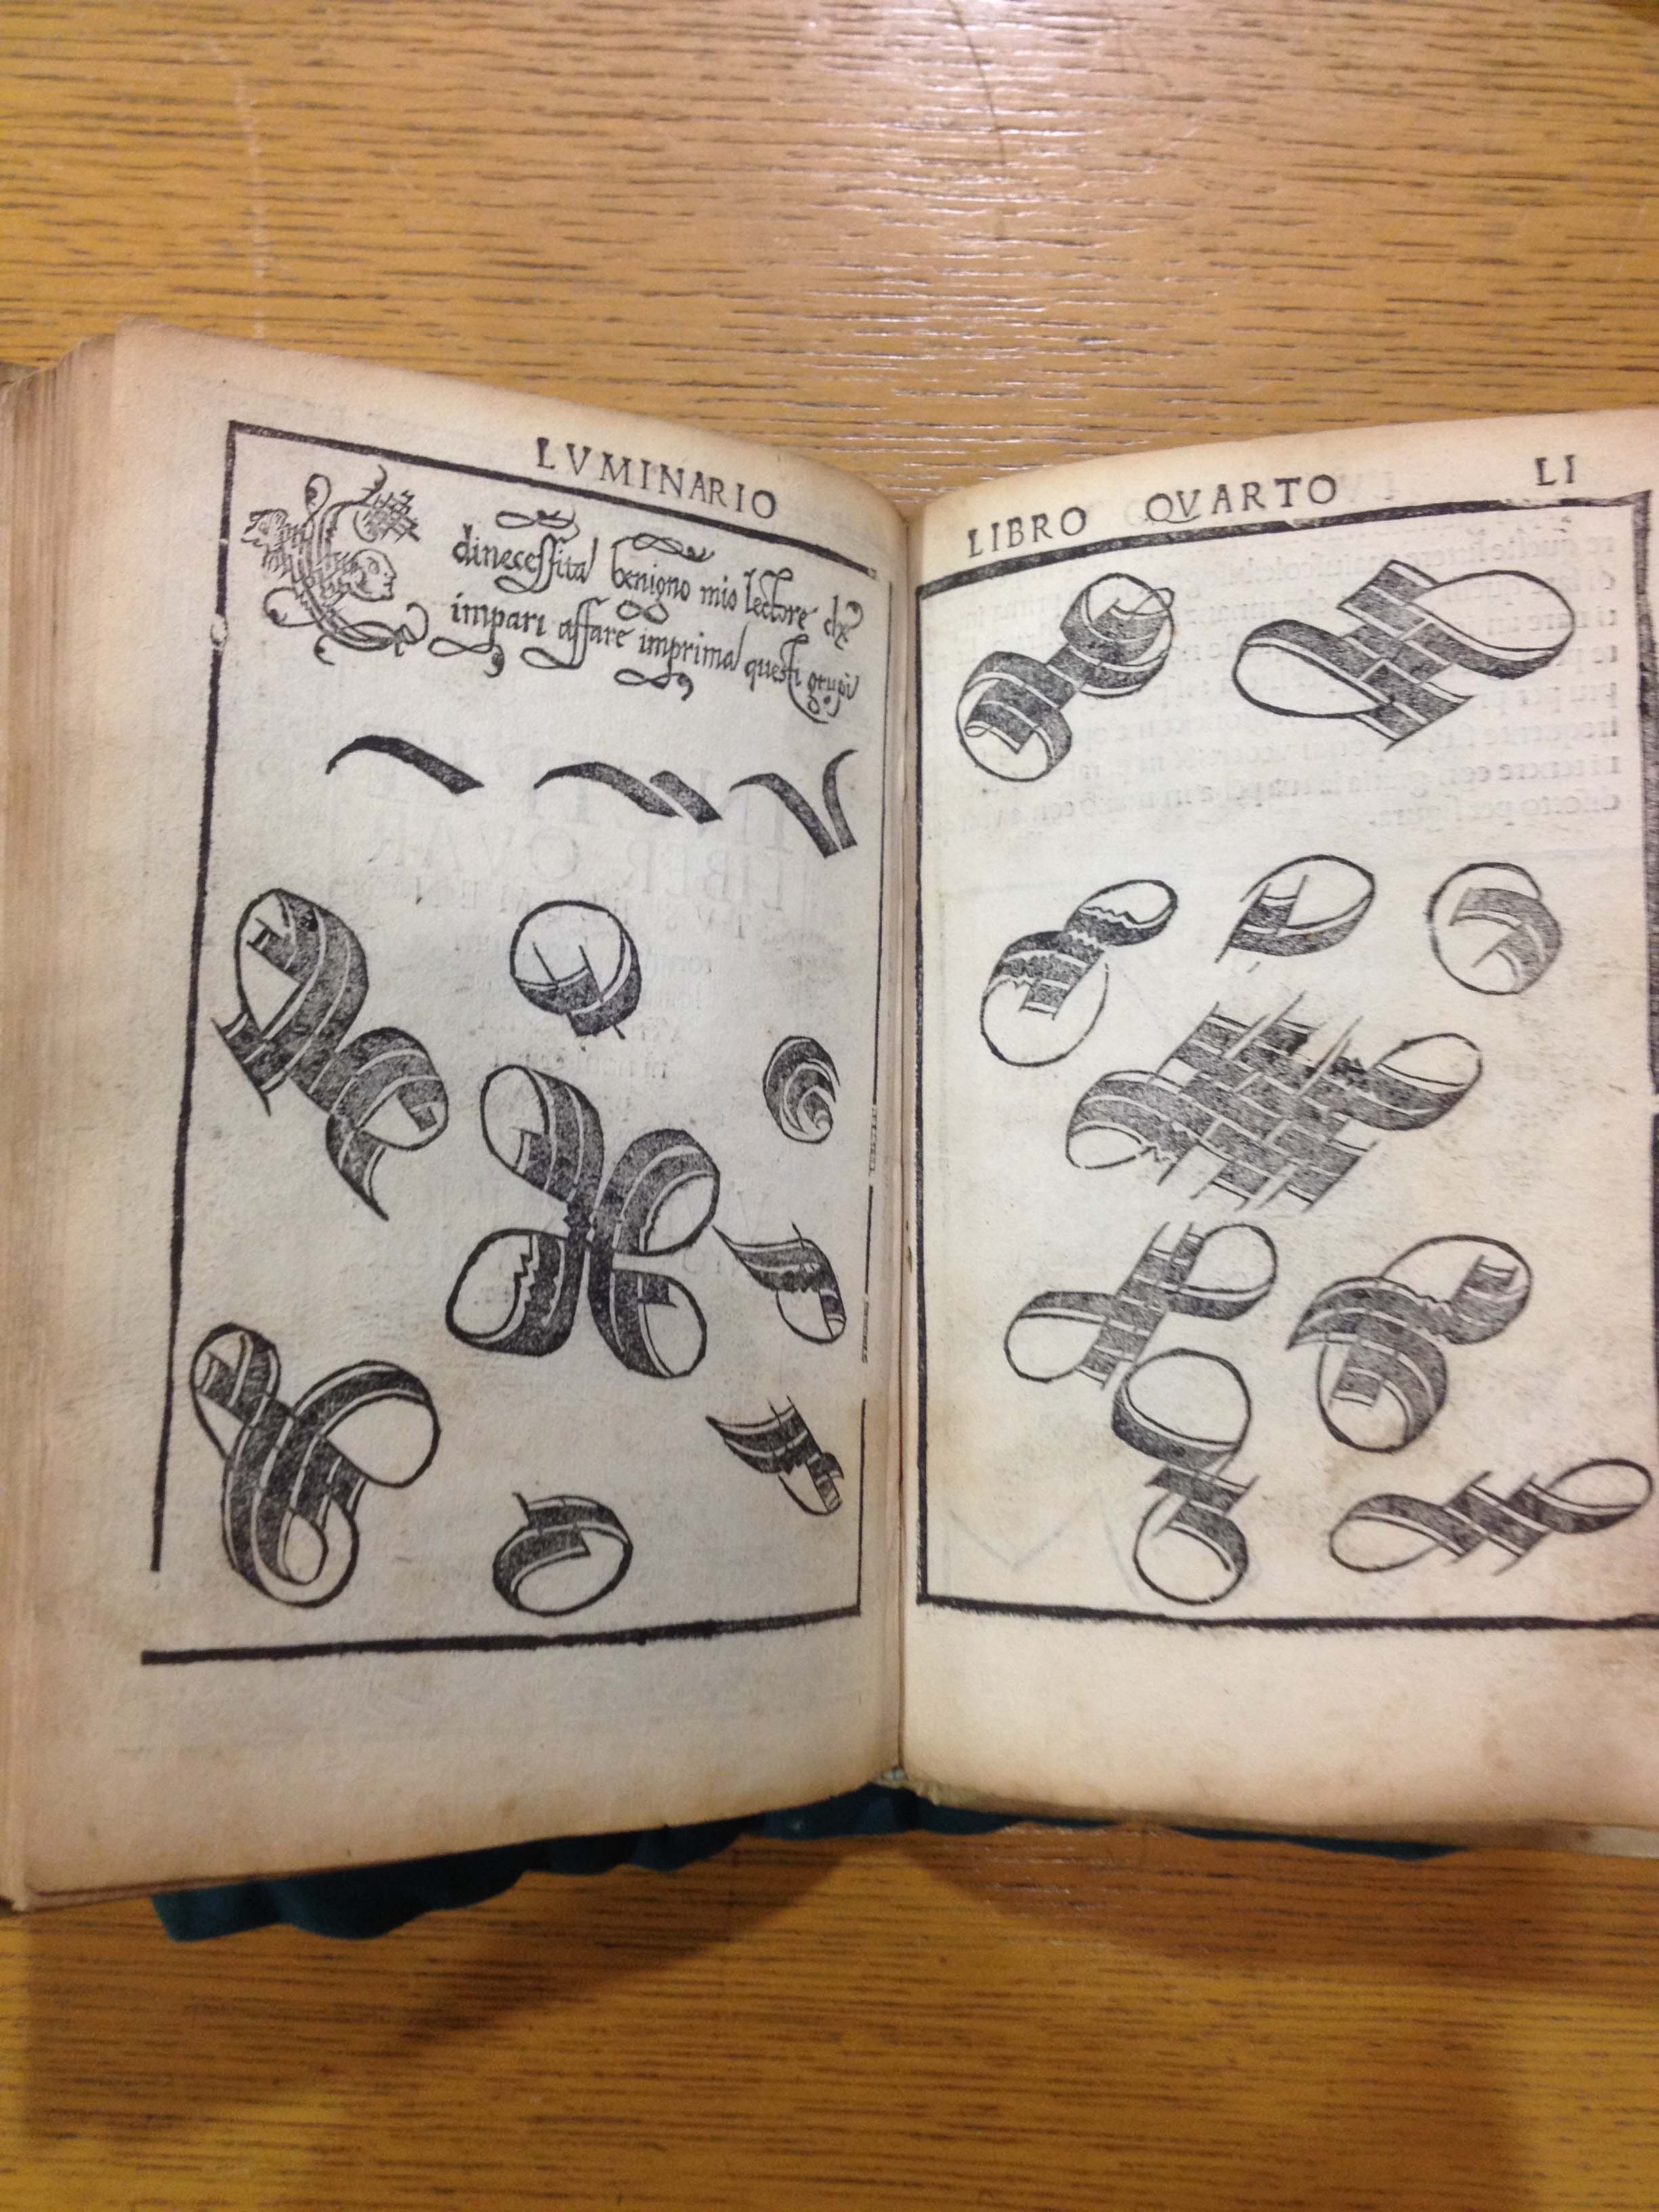 LVMINARIO
dinecessita benigno mio lectore che
impari affare imprima questi grupi
LIBRO QVARTO LI